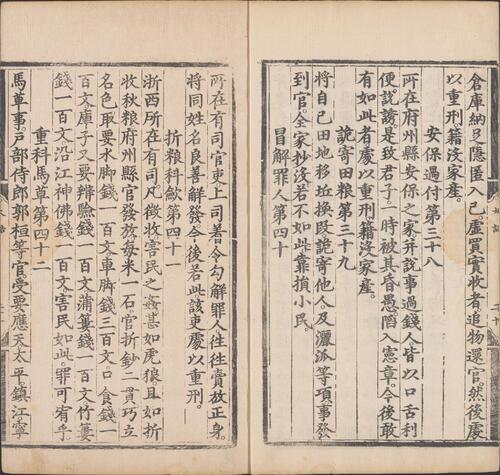 倉庫納了隱匿入己虛買實收者追物還官然後處
以重刑籍沒家產
安保過付第三十八
所在府州縣安保之家并說事過錢人皆以口舌利
便說譎是致君子一時被其昏愚䧟入憲章今後敢
有如此者處以重刑籍沒家產
詭寄田粮第三十九
將自己田地移坵換段詭寄他人及灑派等項事發
到官全家抄沒若不如此靠損小民
冒解罪人第四十
所在有司官吏上司著令勾解罪人往往賣放正身
將同姓名良善解發今後若此該吏處以重刑
折粮科歛第四十一
浙西所在有司凡徵收害民之姦甚如虎狼且如折
收秋粮府州縣官發放每米一石官折鈔二貫巧立
名色取要水脚錢一百文車脚錢三百文口食錢一
百文庫子又要辨驗錢一百文蒲簍錢一百文竹簍
錢一百文沿江神佛錢一百文害民如此罪可宥乎
重科馬草第四十二
馬草事戶部侍郎郭桓等官受要應天太平鎮江寧